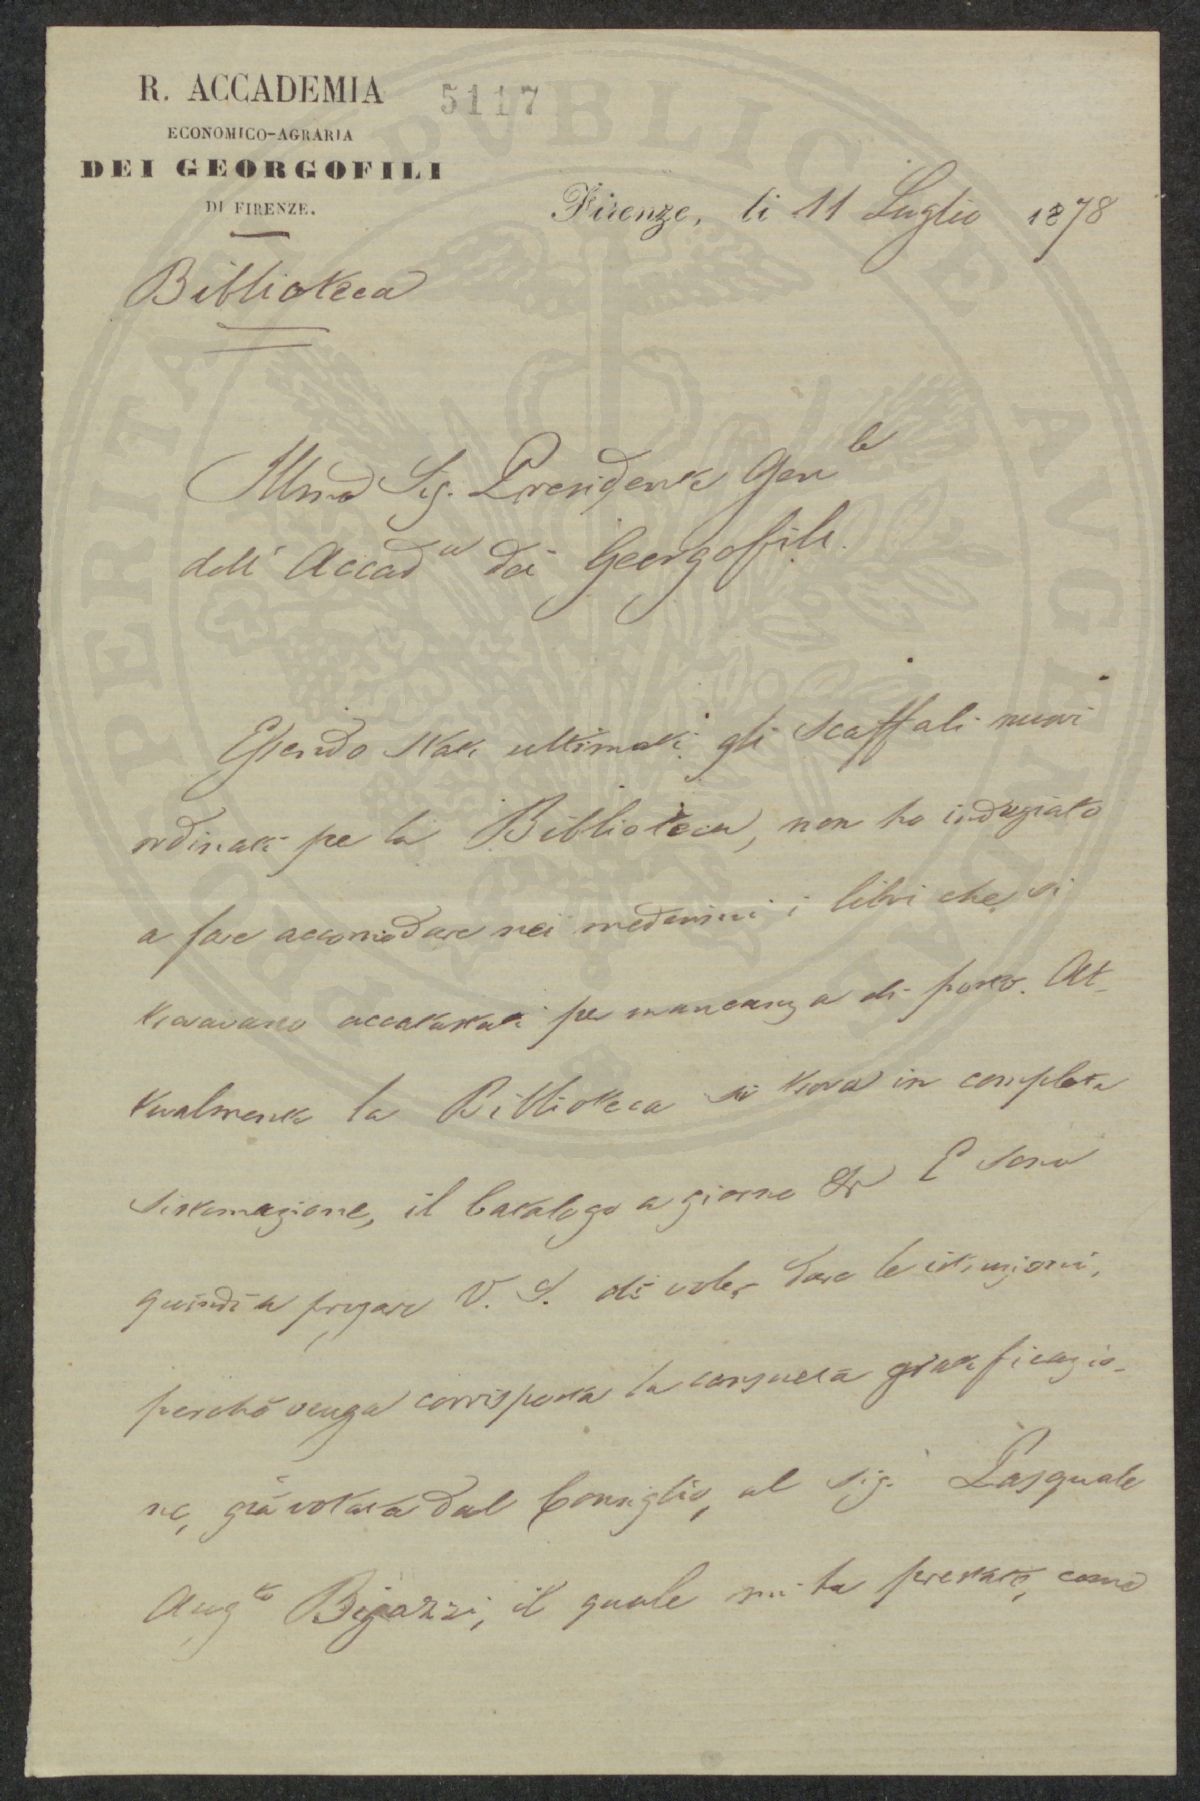 R. ACCADEMIA
5117
ECONOMICO-AGRARIA
DEI GEORGOFILI
DI FIRENZE.
Firenze, li 11 Luglio 1878
Biblioteca
Illmo Sig. Presidente Gen le
dell' Accad a dei Georgofili.
Essendo stati ultimati gli scaffali nuovi
ordinati per la Biblioteca, non ho indugiato
a fare accomodare nei medesimi i libri che si
trovavano accatastati per mancanza di posto. At-
tualmente la Biblioteca si trova in completa
sistemazione, il Catalogo a giorno &r E sono
quindi a pregare V. S. di voler dare le istruzioni,
perchè venga corrisposta la consueta gratificazio-
ne, già votata dal Consiglio, al sig. Pasquale
Aug to Bigazzi, il quale mi ha prestato, come
PROSPERITATI PVBLICAE AVGENDAE